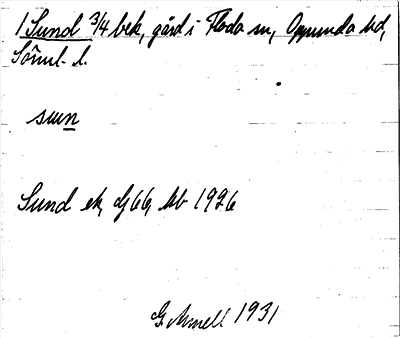 1 Sund 3/4 bek, gård i Floda sn, Oppunda hd,
Söml. l.
sun
Sund ek, dj 66, kb 1926
G. Armell 1931